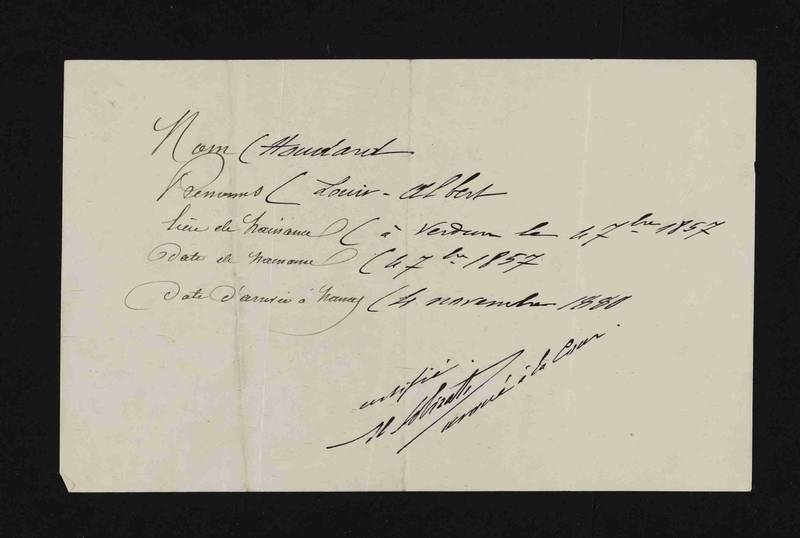 Nom ( Houdard
Prénoms ( Louis-Albert
lieu de naissance ( à Verdun le 4 7bre 1857
Date de naissance ( 4 7bre 1857
Date d'arrivée à Nancy ( 4 novembre 1880
certifié
avoué à la Cour.